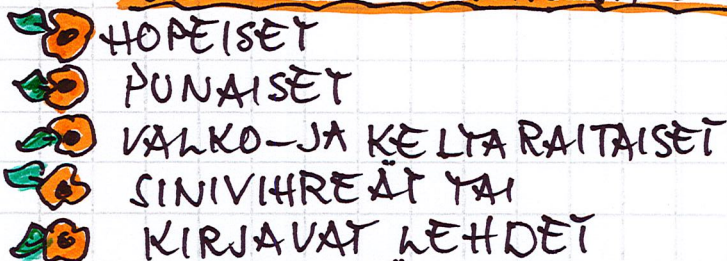 HOPEISET
PUNAISET
VALKO-JA KELTARAITAISET
SINIVIHREÄT TAI
KIRJAVAT LEHDET